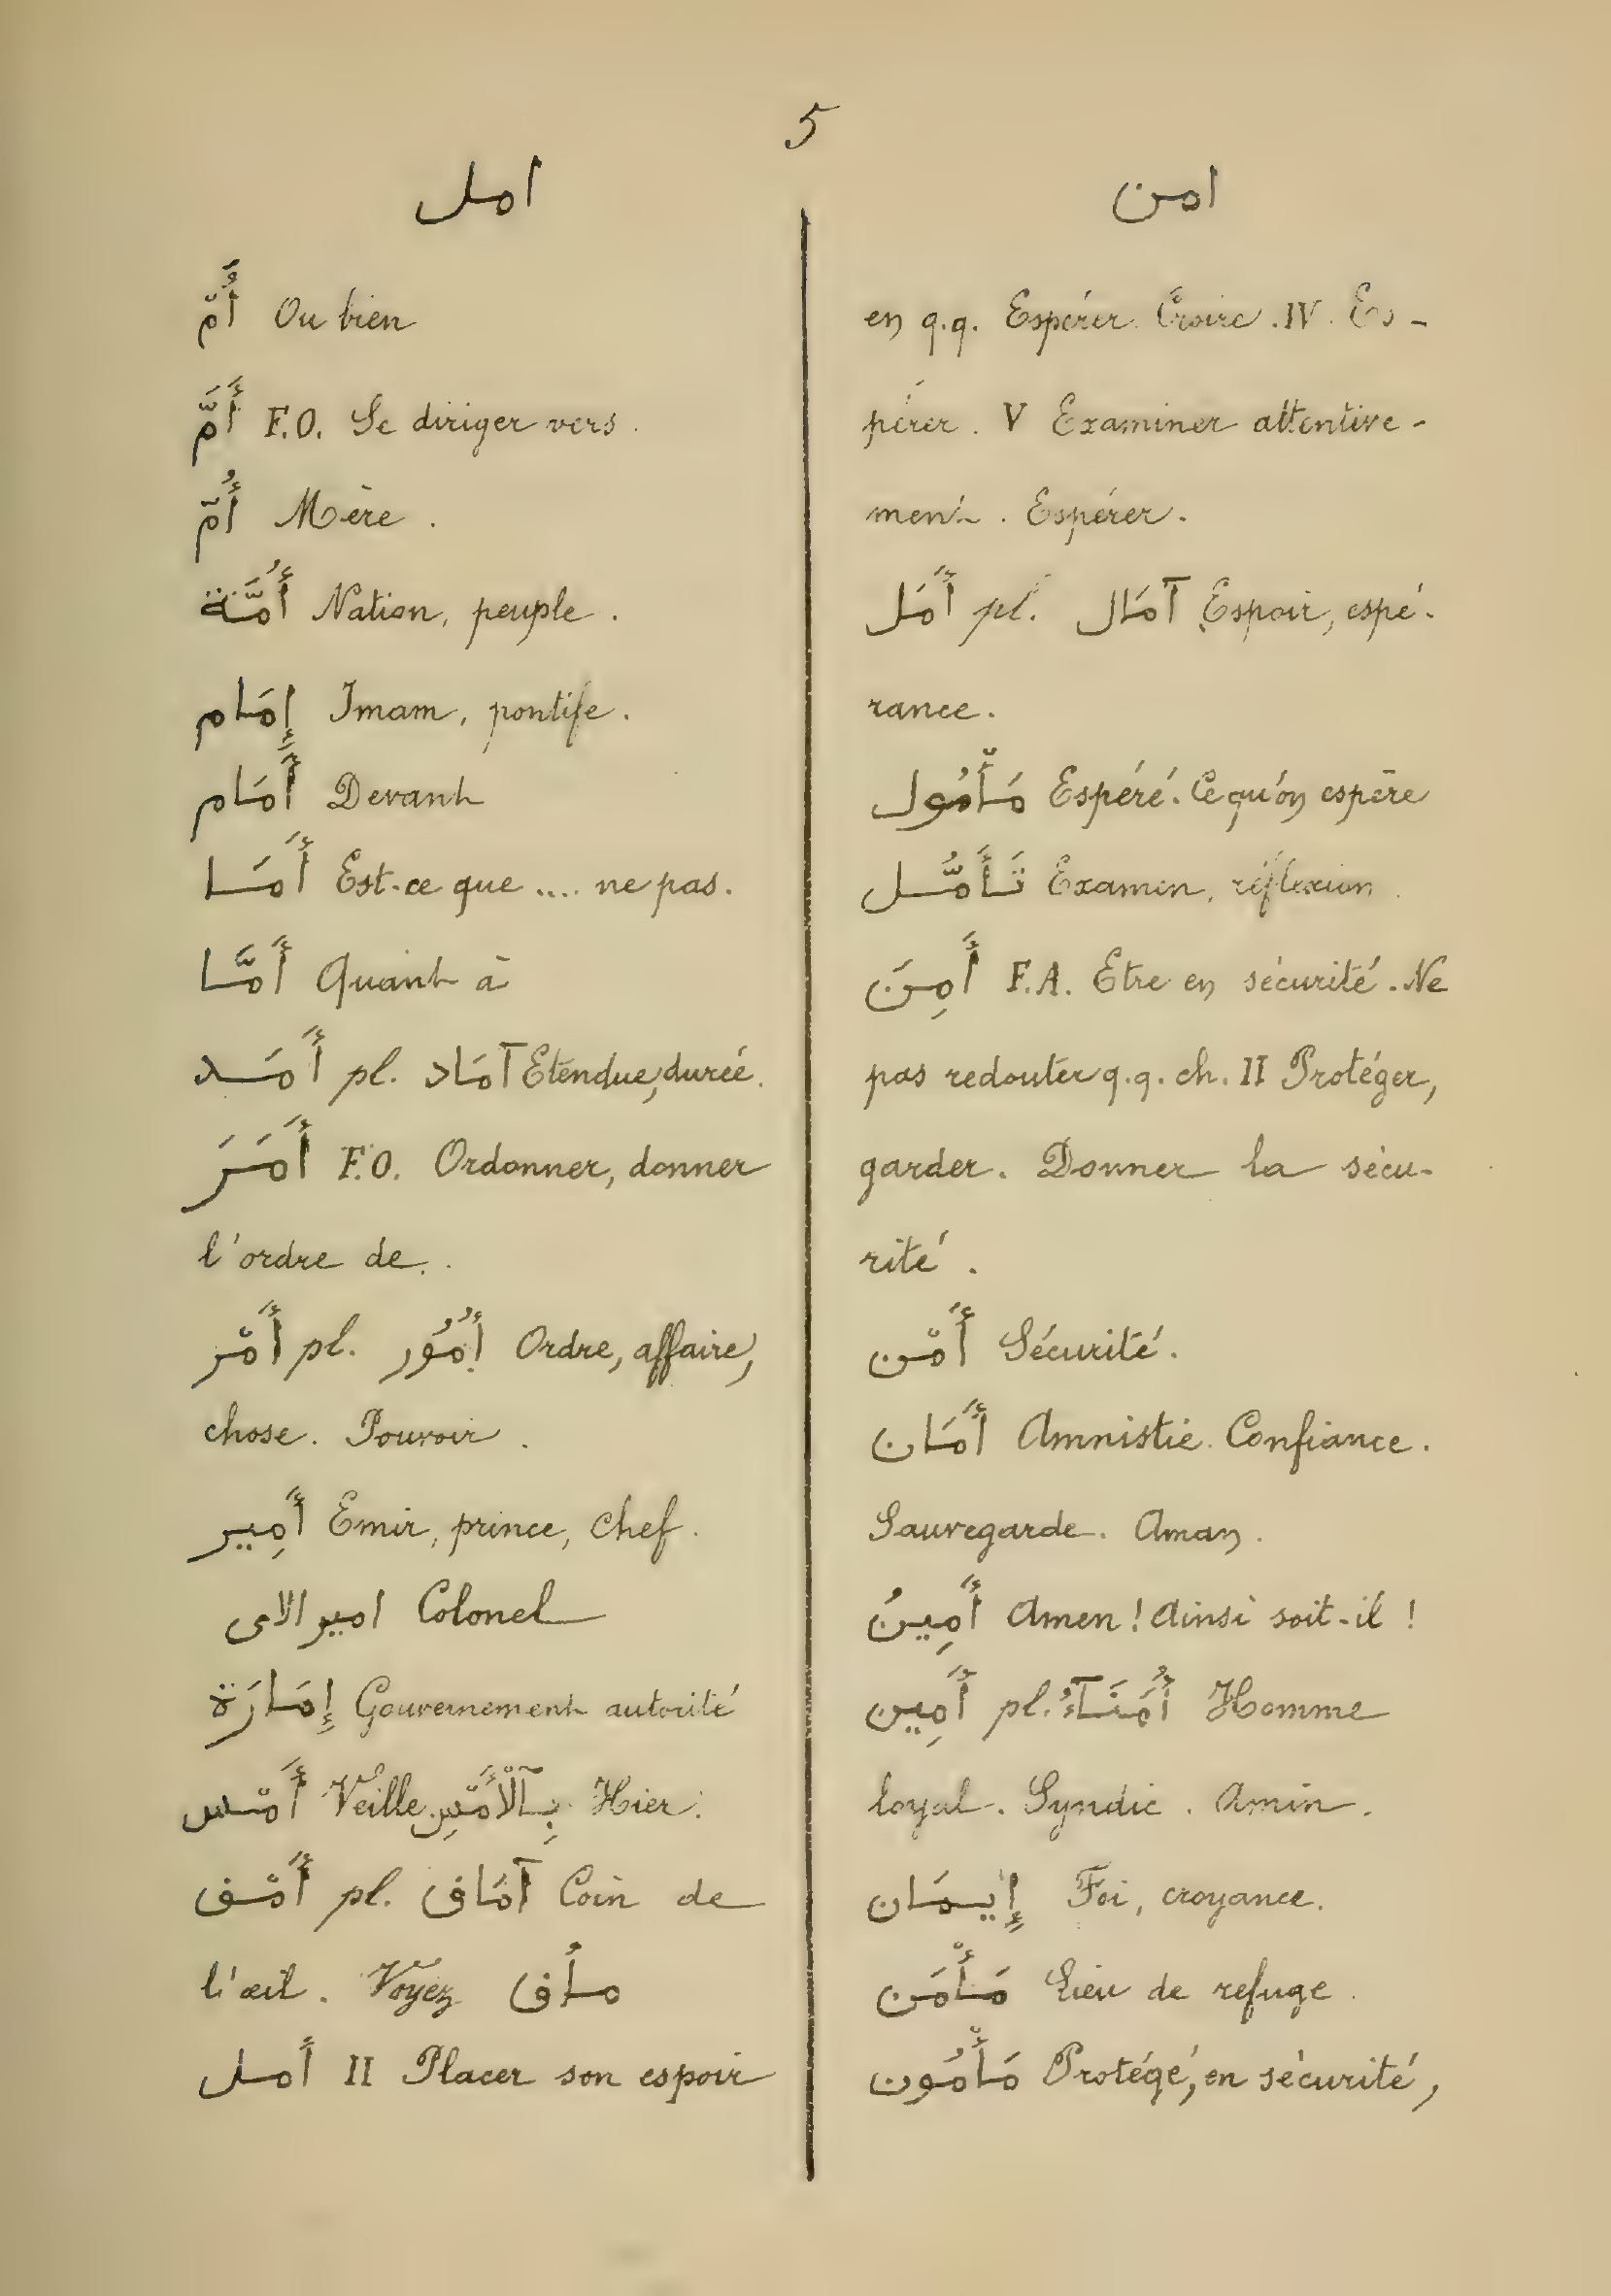 5
امل
أُمّ Ou bien
أَمَّ F.O. Se diriger vers.
أُمّ Mère.
أُمَّة Nation, peuple.
إِمَام Imam, pontife.
أَمَام Devant
أَمَا Est-ce que .... ne pas.
أَمَّا Quant à
أَمَد pl. آمَاد Etendue, durée.
أَمَرَ F.O. Ordonner, donner
l'ordre de..
أَمْر pl. أُمُور Ordre, affaire,
chose. Pouvoir.
أَمِير Emir, prince, chef.
امير الاى Colonel
إِمَارَة Gouvernement autorité
أَمْس Veille بِٱلْأَمْسِ Hier.
أَمْڢ pl. آمَاڢ Coin de
l'œil. Voyez مأڢ
أمل II Placer son espoir
امن
en q.q. Espérer. Croire. IV. Es-
pérer. V Examiner attentive-
ment. Espérer.
أَمَل pl. آمَال Espoir, espé-
rance.
مَأْمُول Espéré. Ce qu'on espère
تَأَمُّل Examen, réflexion.
أَمِنَ F.A. Etre en sécurité. Ne
pas redouter q.q. ch. II Protéger,
garder. Donner la sécu-
rité.
أَمْن Sécurité.
أَمَان Amnistie. Confiance.
Sauvegarde. Aman.
أَمِينُ Amen! Ainsi soit-il!
أَمِين pl. أُمَنَآءُ Homme
loyal. Syndic. Amin.
إِيمَان Foi, croyance.
مَأْمَن Lieu de refuge.
مَأْمُون Protégé, en sécurité,